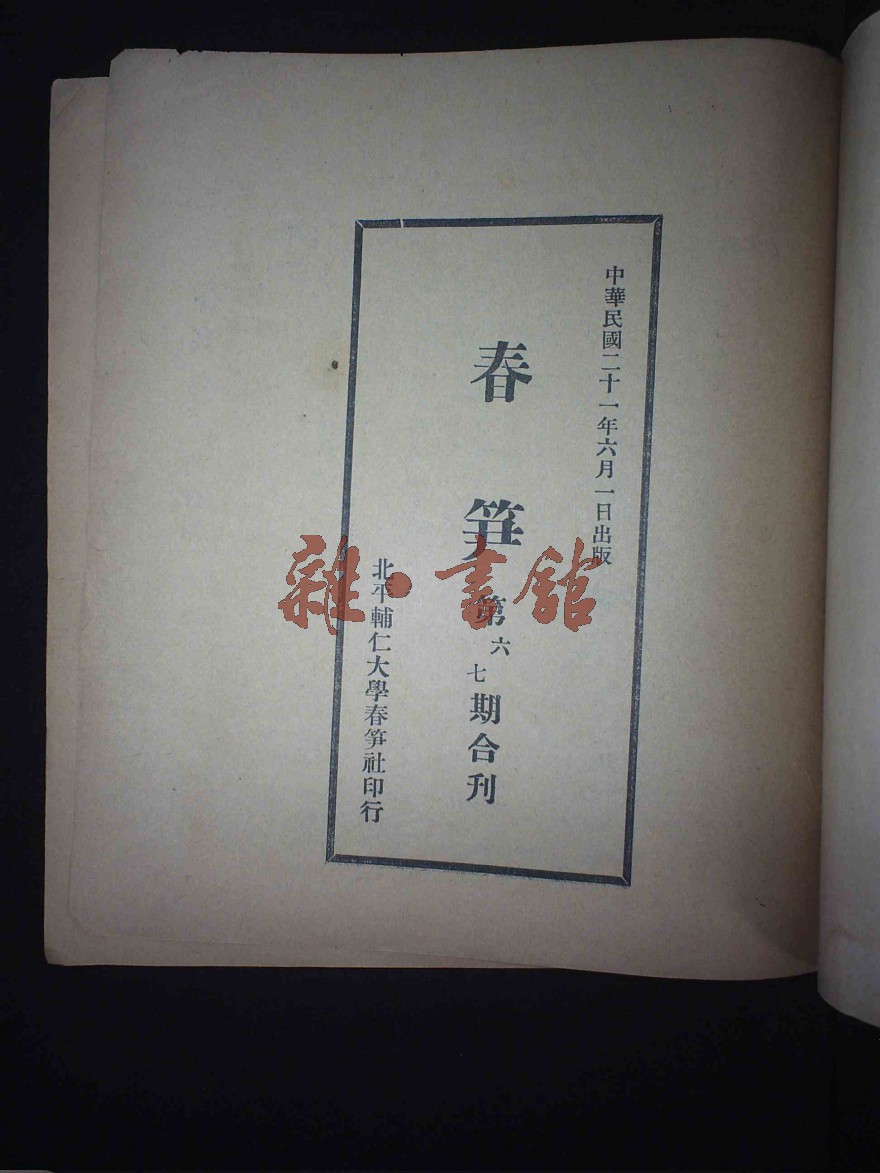 中華民國二十一年六月一日出版
春笋第六七期合刊
北平輔仁大學春笋社印行
雜·書舘